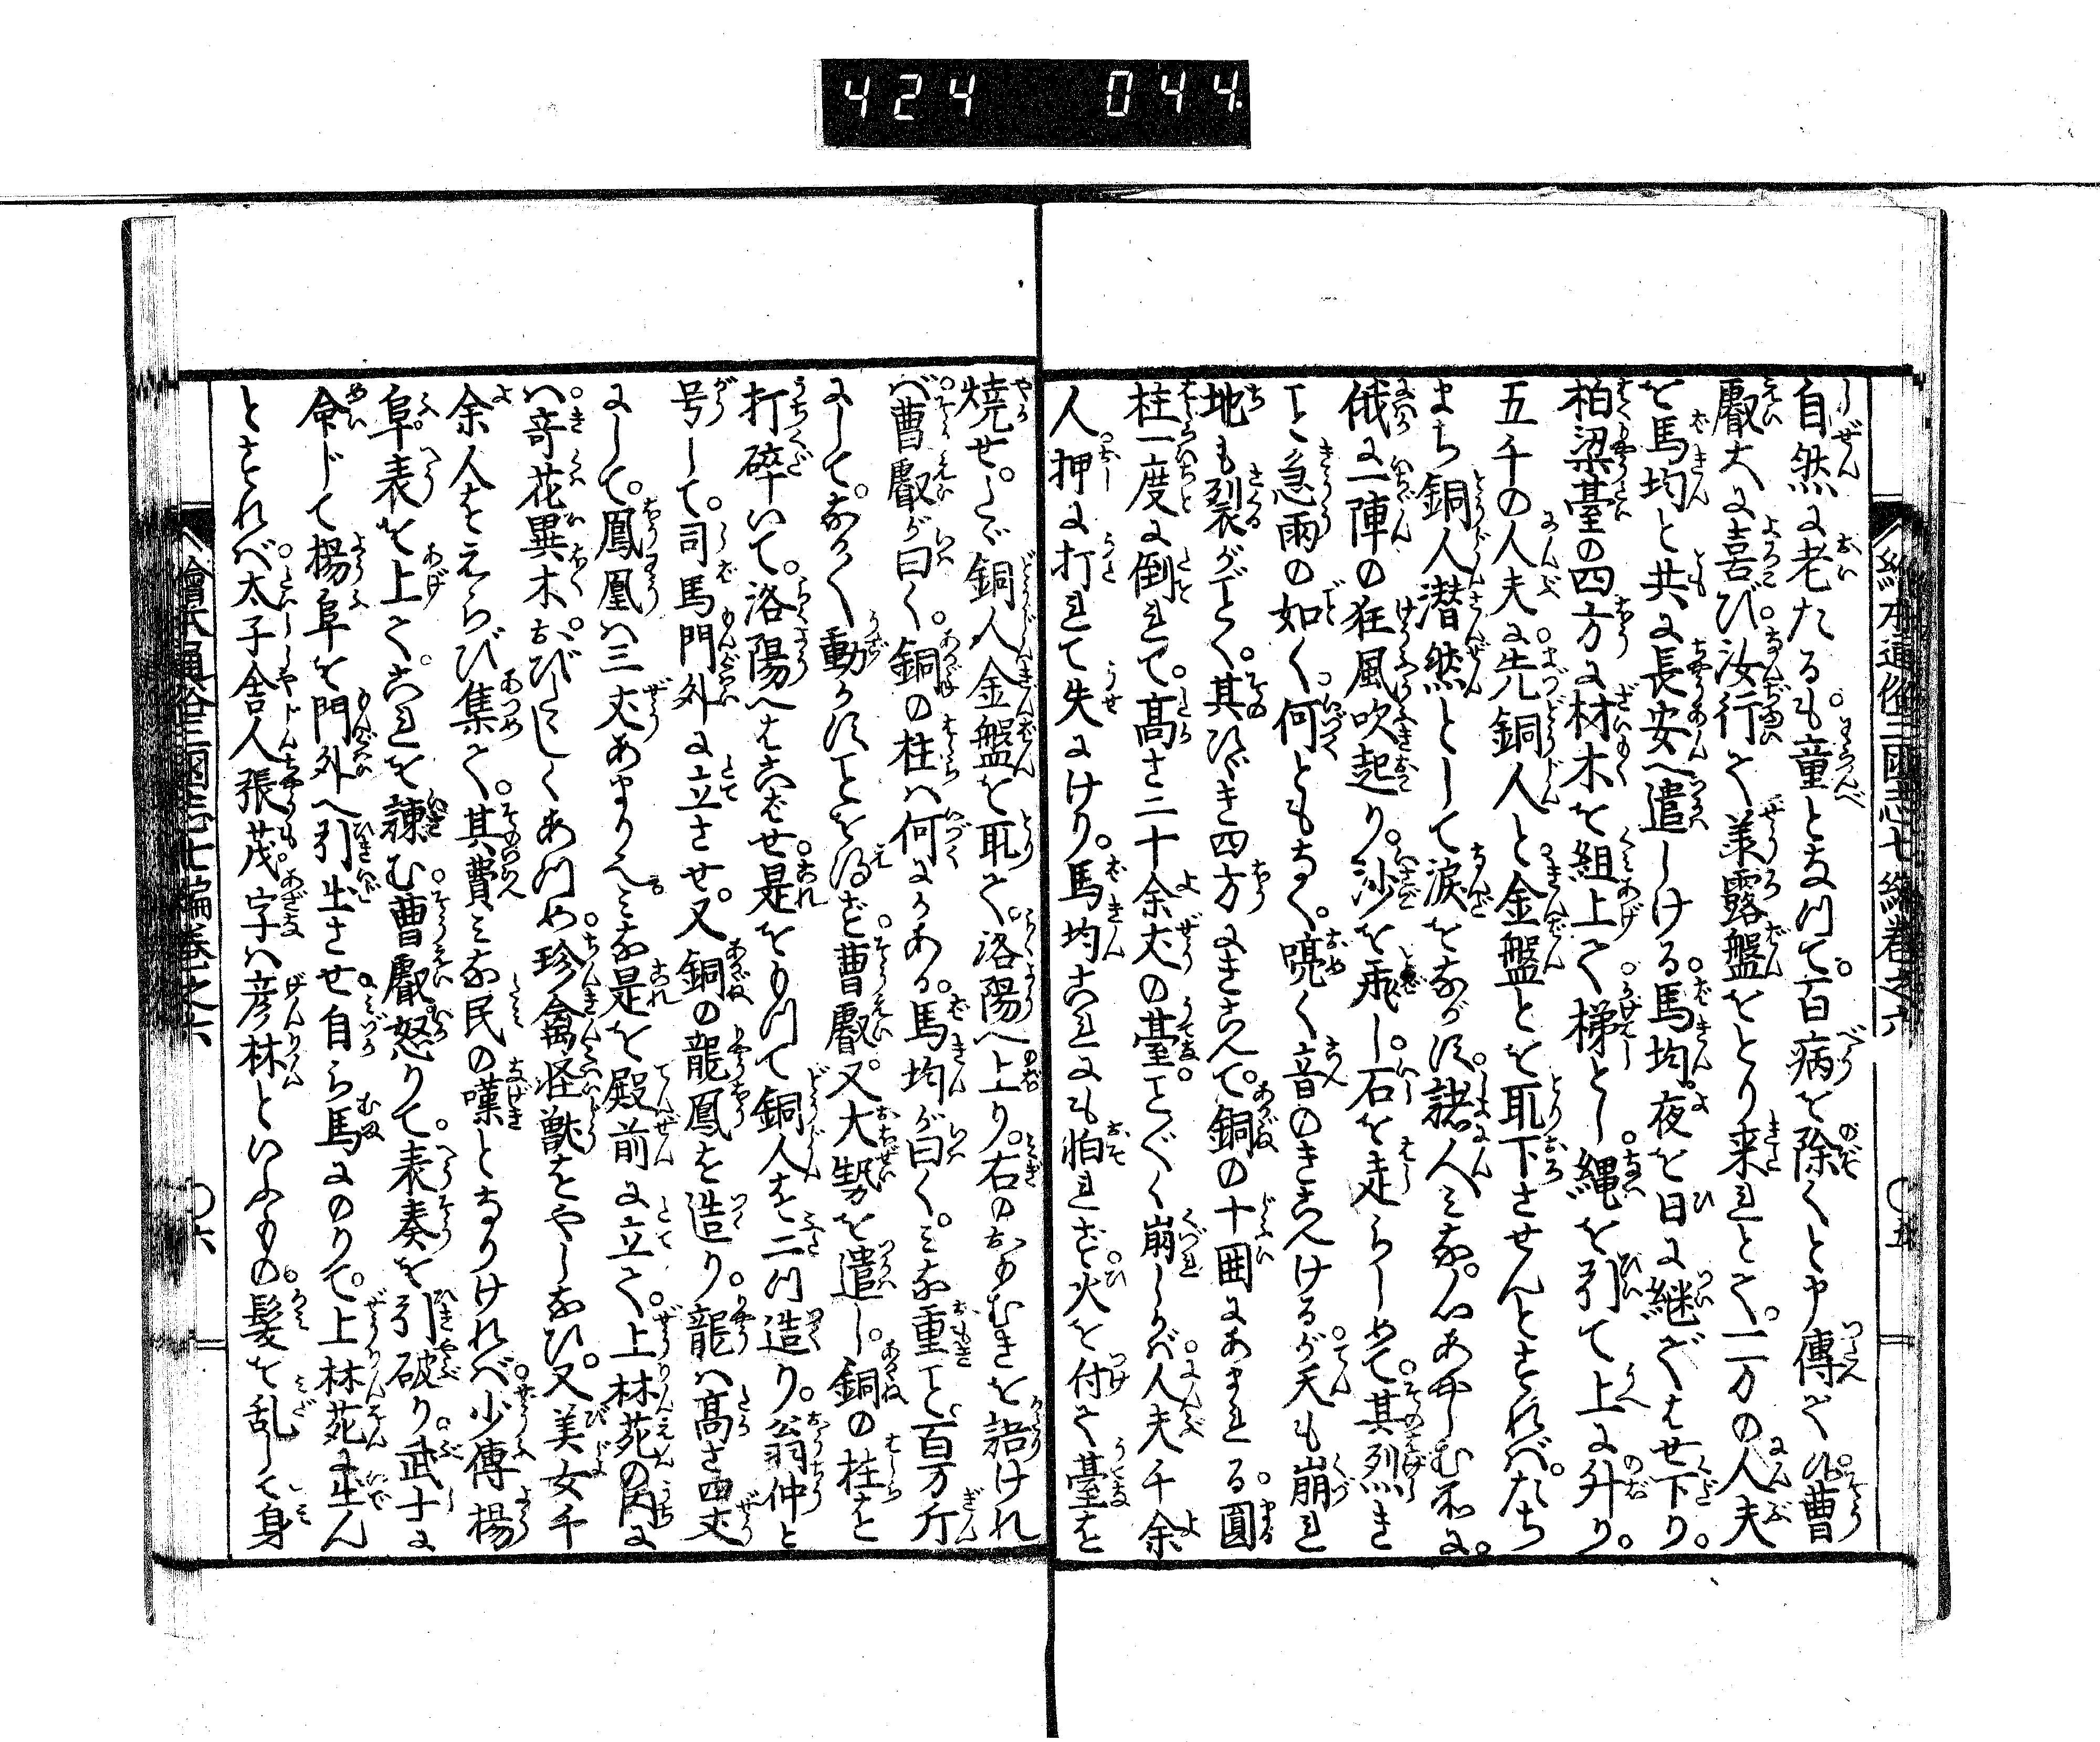 424 044
自然に老たるも。童となつて。百病を除くと申傳て候。曹
叡大に喜び。汝行て。業露盤をとり来れとて。一万の人夫
を馬均と共に長安へ遣しける。馬均。夜を日に継ではせ下り。
柏梁臺の四方に材木を組上て。梯とし。縄を引て上に升り。
五千の人夫に。先銅人と。金盤とを取下させんとすれば。たち
まち銅人潜然として涙をながす。諸人みな。心あやしむ所に。
俄に一陣の狂風吹起り。沙を飛し。石を走らしめて。其烈き
こと急雨の如く。何ともなく。喨く音のきこえけるが。天も崩れ
地も裂がごとく。其ひゞき四方にきこえて。銅の十囲にあまれる。圓
柱一度に倒れて。高さ二十余丈の臺。ことごとく崩しかば。人夫千余
人押に打れて失にけり。馬均これにも怕れず。火を付て臺を
焼せ。して銅人金盤を取て。洛陽へ上り。右のおもむきを語けれ
ば。曹叡が曰く。銅の柱は何にかある。馬均が曰く。みな重こと。百万斤
にして。なかく動かすことを得ず。曹叡。又大勢を遣し。銅の柱を
打碎いて。洛陽へはこばせ。是をもつて銅人を二つ造り。翁仲と
号して。司馬門外に立させ。又銅の龍鳳を造り。龍は高さ四丈
にして。鳳凰は三丈あまり。みな是を殿前に立て。上林苑の内に
は。奇花異木。おびたゝしくあつめ。珍禽怪獣をやしなひ。又美女千
余人をえらび集て。其費みな民の嘆となりければ。少傳楊
阜表を上て。これを諫む。曹叡怒りて。表奏を引破り。武士に
命じて楊阜を門外へ引出させ。自ら馬にのりて。上林苑に出ん
とすれば。太子舎人張茂。字は彦林といふもの。髪を乱して身
繪本通俗三國志七編巻之六 〇五
繪本通俗三國志七編巻之六 〇六